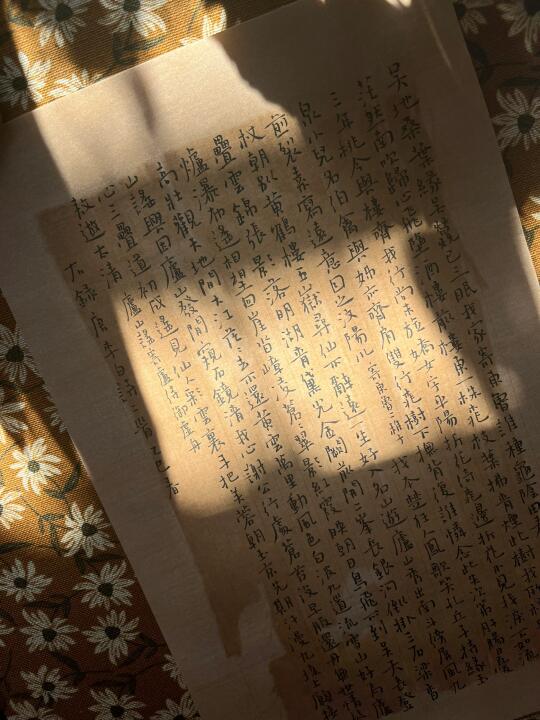 吳地桑葉綠吳蠶已三眠我家寄東魯誰種龜陰田
茫然南吹歸心飛墮酒樓前樓東一株桃花枝葉拂青煙此樹我所種
三年桃今與樓齊我行尚未旋嬌女字平陽折花倚桃邊折花不見我淚如流
泉小兒名伯禽與姊亦齊肩雙行桃樹下撫背復誰憐念此失次第肝腸日憂
煎裂素寫遠意因之汶陽川 寄東魯二稚子 我本楚狂人鳳歌笑孔丘手持綠玉
杖朝別黃鶴樓五嶽尋仙不辭遠一生好入名山遊廬山秀出南斗傍屏風九
疊雲錦張影落明湖青黛光金闕前開二峯長銀河倒掛三石梁香
爐瀑布遙相望回崖沓嶂凌蒼蒼翠影紅霞映朝日鳥飛不到吳天長登
高壯觀天地間大江茫茫去不還黃雲萬里動風色白波九道流雪山好為廬
山謠興因廬山發閒窺石鏡清我心謝公行處蒼苔沒早服還丹無世情琴
心三疊道初成遙見仙人彩雲裏手把芙蓉朝玉京先期汗漫九垓上願接盧
敖遊太清 廬山謠寄盧侍御虛舟
右錄唐李白詩二首 乙巳春